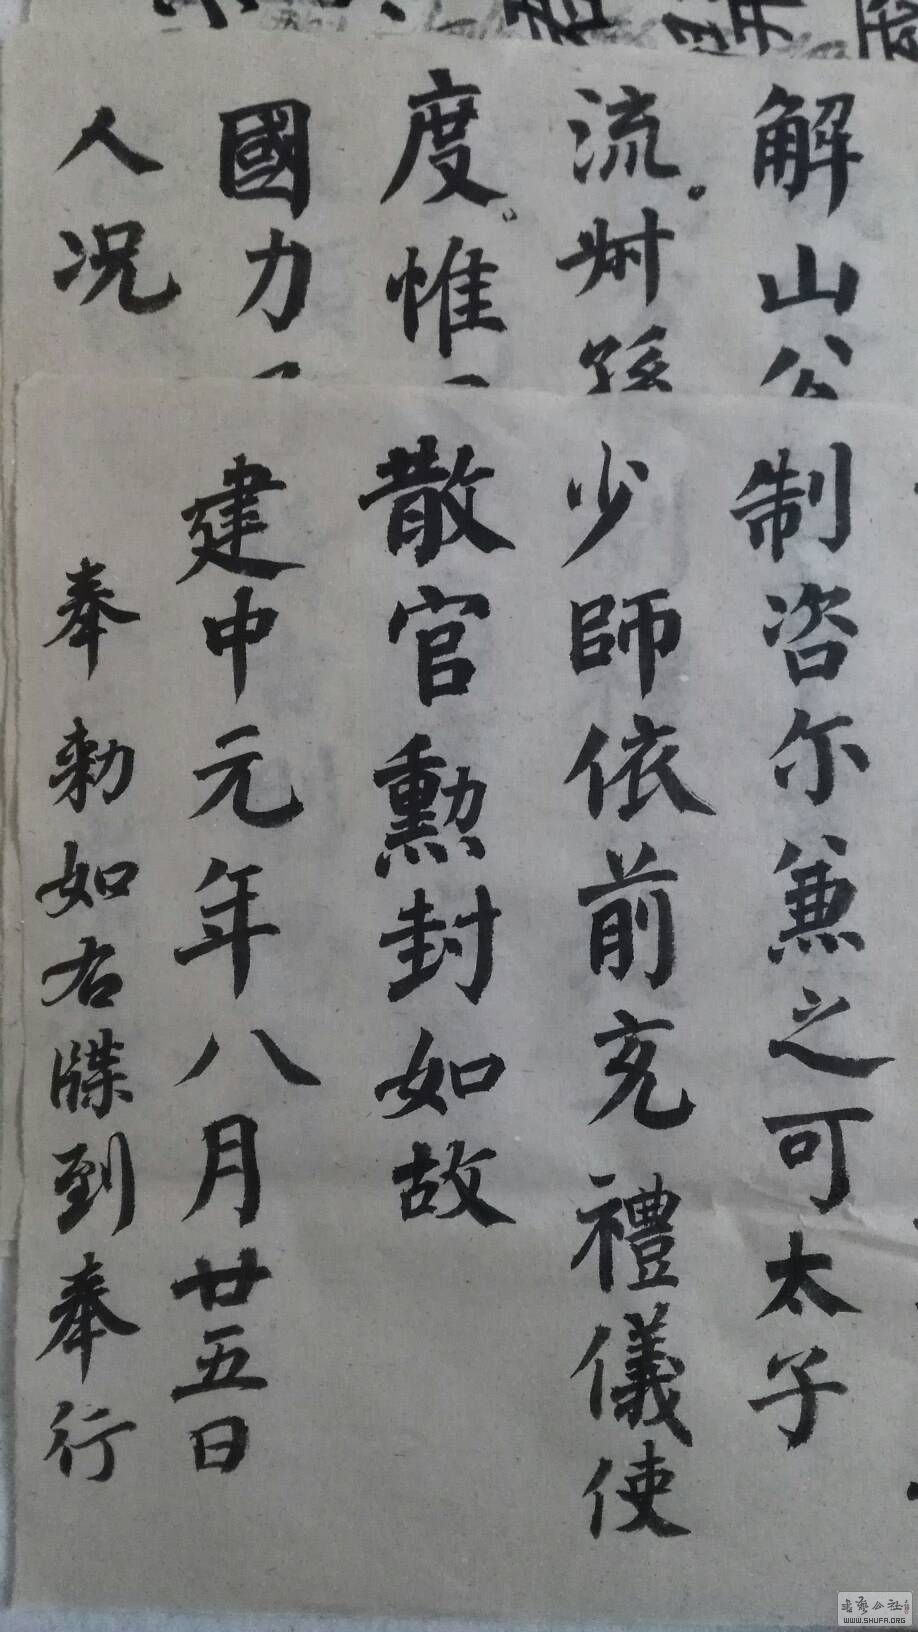 解山公
流叔孫
度惟
國力
人况
制咨尔兼之可太子
少師依前充禮儀使
散官勲封如故
建中元年八月廿五日
奉勅如右牒到奉行
书艺公社
WWW.SHUFA.ORG